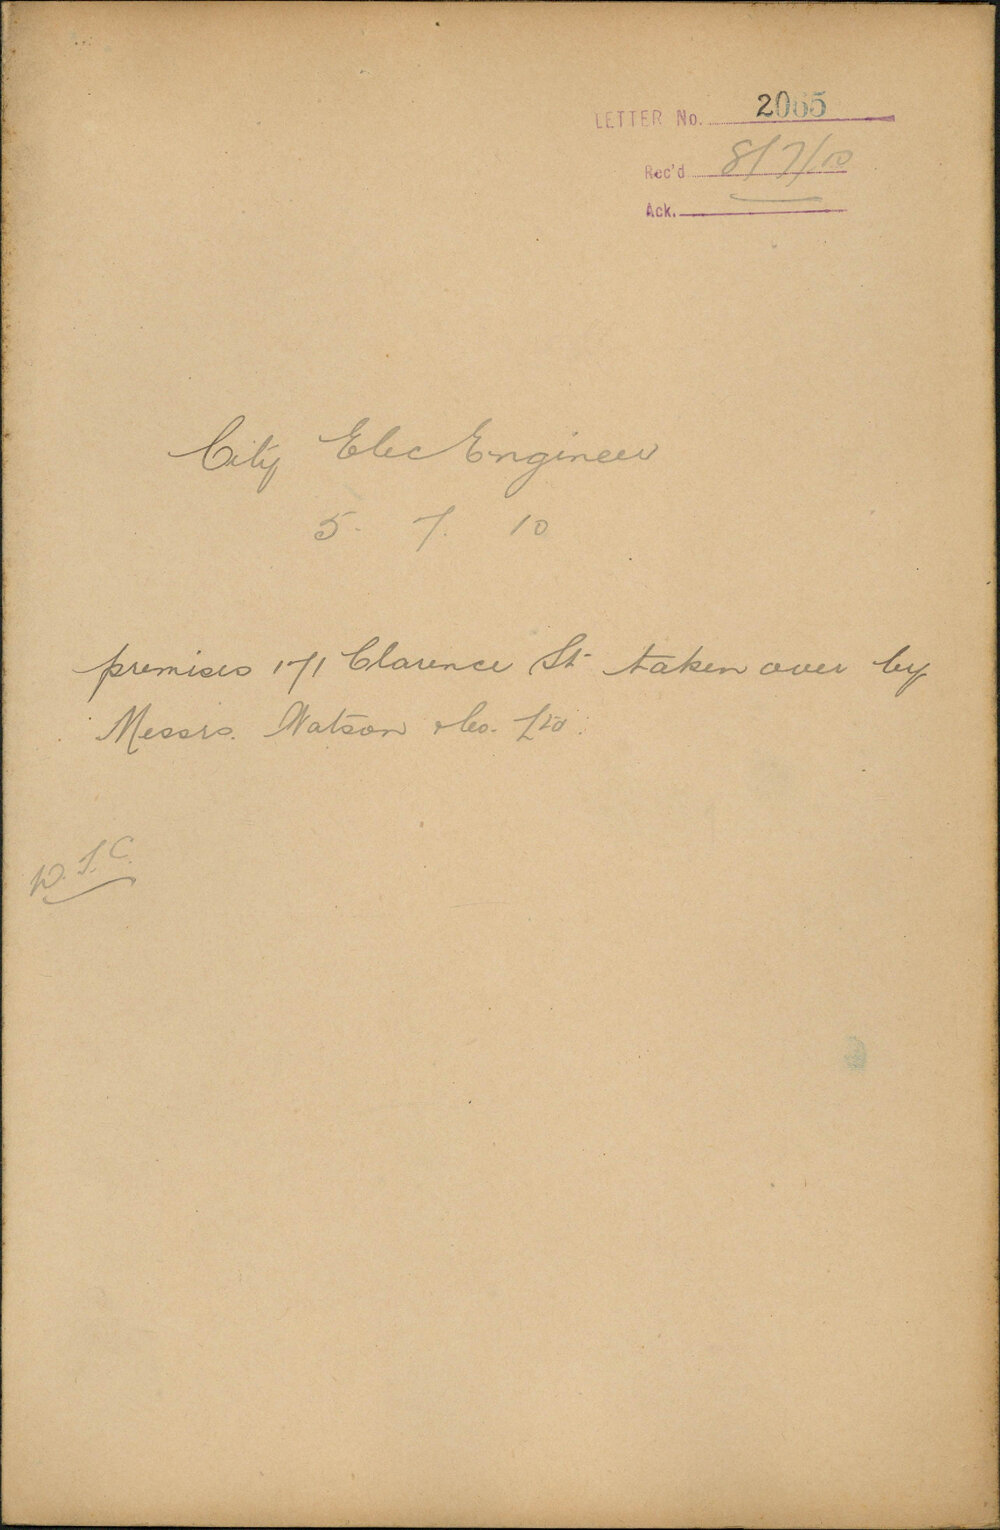 LETTER No. 2065
Rec'd 8/7/10
Ack.
City Elec Engineer
5. 7. 10
premises 171 Clarence St taken over by
Messrs. Watson & Co. Ltd.